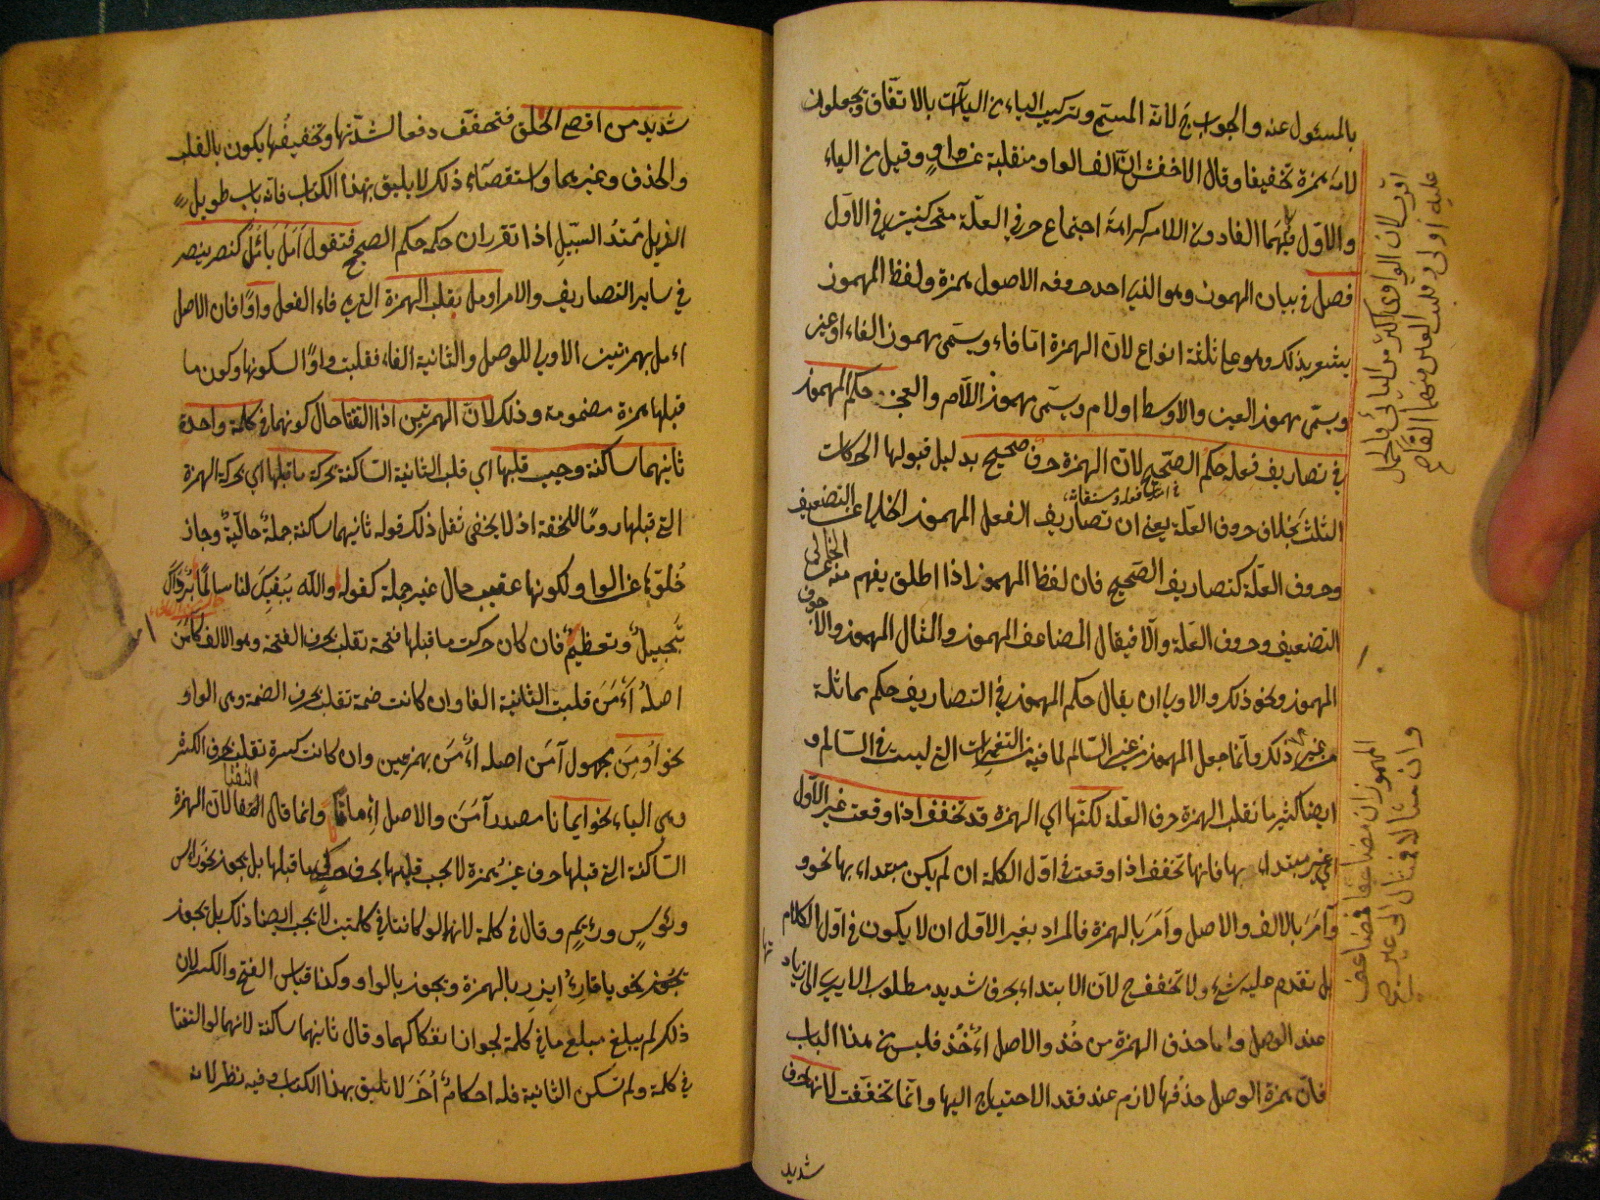 بالمسئول عنه والجواب ج لأنه المستتم وتركيب الياء من اليآات بالاتفاق ويجعلون
لامه همزة تخفيفا وقال الاخفش ان الف الواو منقلبة عن واو وقيل من الياء
والاول اقرب لان الواوى اكثر من اليائى فالحمل
عليه اولى وقلبت العين منهما الفا دون اللام كراهة اجتماع حرفي العلة متحركتين في الاول
فصل في بيان المهموز وهو الذي احد حروفه الاصول همزة ولفظ المهموز
يشعر بذلك وهو على ثلثة انواع لان الهمزة اما فاء ويسمى مهموز الفاء او عين
ويسمى مهموز العين والاوسط او لام ويسمى مهموز اللام والعجز حكم المهموز
في تصاريف فعله حكم الصحيح لان الهمزة حرف صحيح بدليل قبولها الحركات
الثلث بخلاف حروف العلة يعني ان تصاريف الفعل المهموز الخالي عن التضعيف
وحروف العلة كتصاريف الصحيح فان لفظ المهموز اذا اطلق يفهم منه الخالى عن
التضعيف وحروف العلة والا فيقال المضاعف المهموز والمثال المهموز والاجوف
المهموز ونحو ذلك والاولى ان يقال حكم المهموز في التصاريف حكم مماثلة
من غير ذلك وانما جعل المهموز من غير السالم لما فيه من التغييرات التي ليست في السالم و
ايضا كثير ما تقلب الهمزة حرف العلة لكنها اي الهمزة قد تخفف اذا وقعت غير الاول
اي غير مبتداء بها فانها تخفف اذا وقعت في اول الكلمة ان لم يكن مبتداء بها نحو و
وآمر بالالف والاصل وأمر بالهمزة فالمراد بغير الاول ان لا يكون في اول الكلام
بل تقدم عليه شيء ولا تخفف ج لان الابتداء بحرف شديد مطلوب
عند الوصل واما حذف الهمزة من خذ والاصل اءخذ فليس من هذا الباب
فان همزة الوصل حذفها لازم عند فقد الاحتياج اليها وانما تخففت لانها حرف
شديد
المهموز ان مضاعفا فمضاعف
وان مثالا فمثال الى غير ذلك
شديد من اقصى الحلق فتخفف دفعا لشدتها وتخفيفها يكون بالقلب
والحذف وغيرهما واستقصاء ذلك لا يليق بهذا الكتاب فانه باب طويل
الذيل ممتد السبيل اذا تقرر ان حكمه حكم الصحيح فتقول امل يأمل كنصر ينصر
في ساير التصاريف والامر اومل بقلب الهمزة التي هي فاء الفعل واوا فان الاصل
اءمل بهمزتين الاولى للوصل والثانية الفاء فقلبت واوا لسكونها وكون ما
قبلها همزة مضمومة وذلك لان الهمزتين اذا التقتا حال كونهما في كلمة واحدة
ثانيهما ساكنة وجب قلبها اي قلب الثانية الساكنة بحركة ما قبلها اي بحركة الهمزة
التي قبلها روما للخفة اذ لا يخفى ثقل ذلك قوله ثانيهما ساكنة جملة حالية وجاز
خلوها عن الواو لكونها عقيب حال غير جملة كقوله والله يبقيك لنا سالما برداك
تبجيل وتعظيم فان كان حركت ما قبلها فتحة تقلب بحرف الفتحة وهو الالف كآمن
اصله أأمن قلبت الثانية الفا وان كانت ضمة تقلب بحرف الضمة وهي الواو
نحو اومن مجهول آمن اصله اءمن بهمزتين وان كانت كسرة تقلب بحرف الكسر
وهي الياء نحو ايمانا مصدر آمن والاصل اءمانا وانما قال التقتا لان الهمزة
الساكنة التي قبلها حرف غير همزة لا يجب قلبها بحرف حركة ما قبلها بل يجوز نحو راس
وبؤس ورئم وقال في كلمة لانها لو كانتا في كلمتين لا يجب ايضا ذلك بل يجوز
يجوز نحو يا قارئ ايزر بالهمزة ويجوز بالواو وكذا قياس الفتح والكسر لان
ذلك لم يبلغ مبلغ ما في كلمة لجواز انفكاكهما وقال ثانيهما ساكنة لانهما لو التقتا
في كلمة ولم تسكن الثانية فله احكام أخر لا تليق بهذا الكتاب وفيه نظر لانه